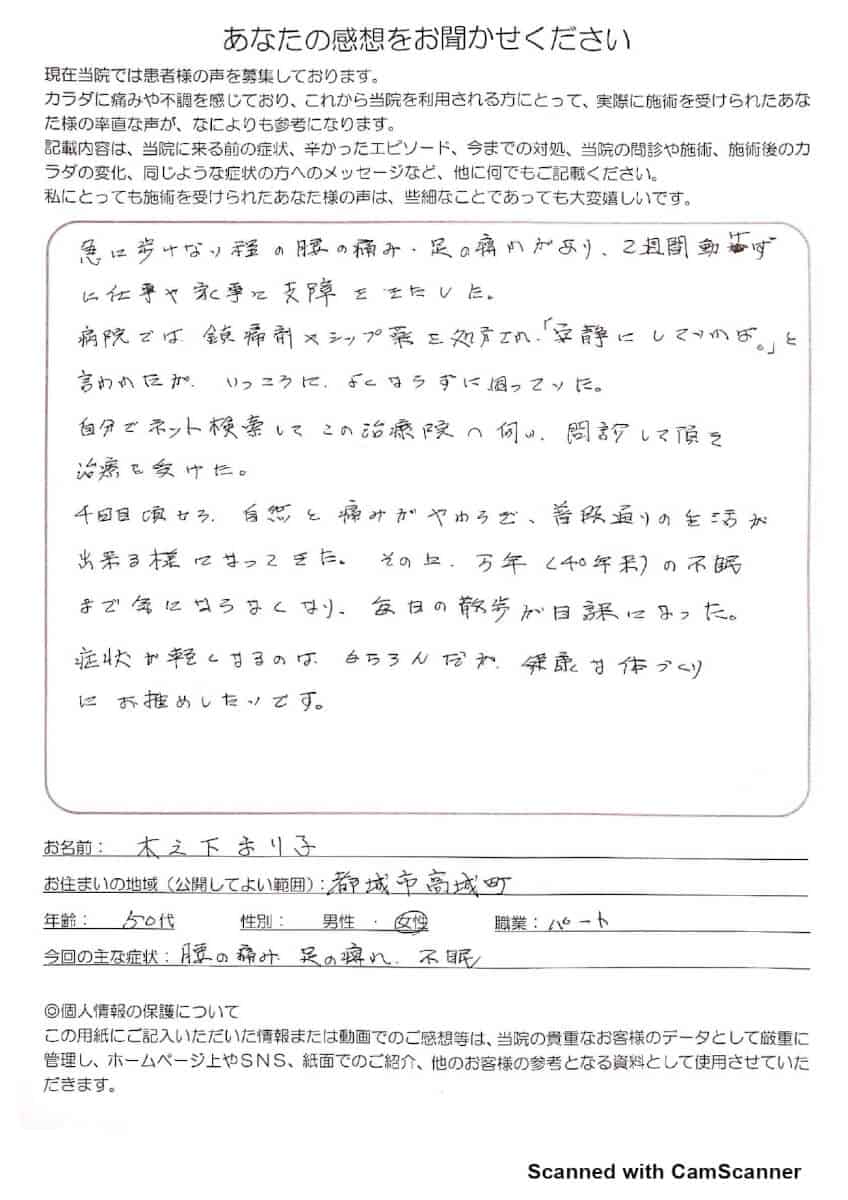 あなたの感想をお聞かせください
現在当院では患者様の声を募集しております。
カラダに痛みや不調を感じており、これから当院を利用される方にとって、実際に施術を受けられたあな
た様の率直な声が、なによりも参考になります。
記載内容は、当院に来る前の症状、辛かったエピソード、今までの対処、当院の問診や施術、施術後のカ
ラダの変化、同じような症状の方へのメッセージなど、他に何でもご記載ください。
私にとっても施術を受けられたあなた様の声は、些細なことであっても大変嬉しいです。
急に歩けない程の腰の痛み・足の痺れがあり、2週間動けず
に仕事や家事に支障をきたした。
病院では鎮痛剤とシップ薬を処方され、「安静にしていれば。」と
言われたが、いっこうに、よくならずに困っていた。
自分でネット検索してこの治療院へ伺い、問診して頂き
治療を受けた。
4回目頃から、自然と痛みがやわらぎ、普段通りの生活が
出来る様になってきた。その上、万年(40年来)の不眠
まで気にならなくなり、毎日の散歩が日課になった。
症状が軽くなるのはもちろんだが、健康な体づくり
にお推めしたいです。
お名前: 木之下まり子
お住まいの地域(公開してよい範囲):都城市高城町
年齢: 50代 性別: 男性 ・ 女性 職業:パート
今回の主な症状:腰の痛み 足の痺れ、不眠
◎個人情報の保護について
この用紙にご記入いただいた情報または動画でのご感想等は、当院の貴重なお客様のデータとして厳重に
管理し、ホームページ上やSNS、紙面でのご紹介、他のお客様の参考となる資料として使用させていた
だきます。
Scanned with CamScanner